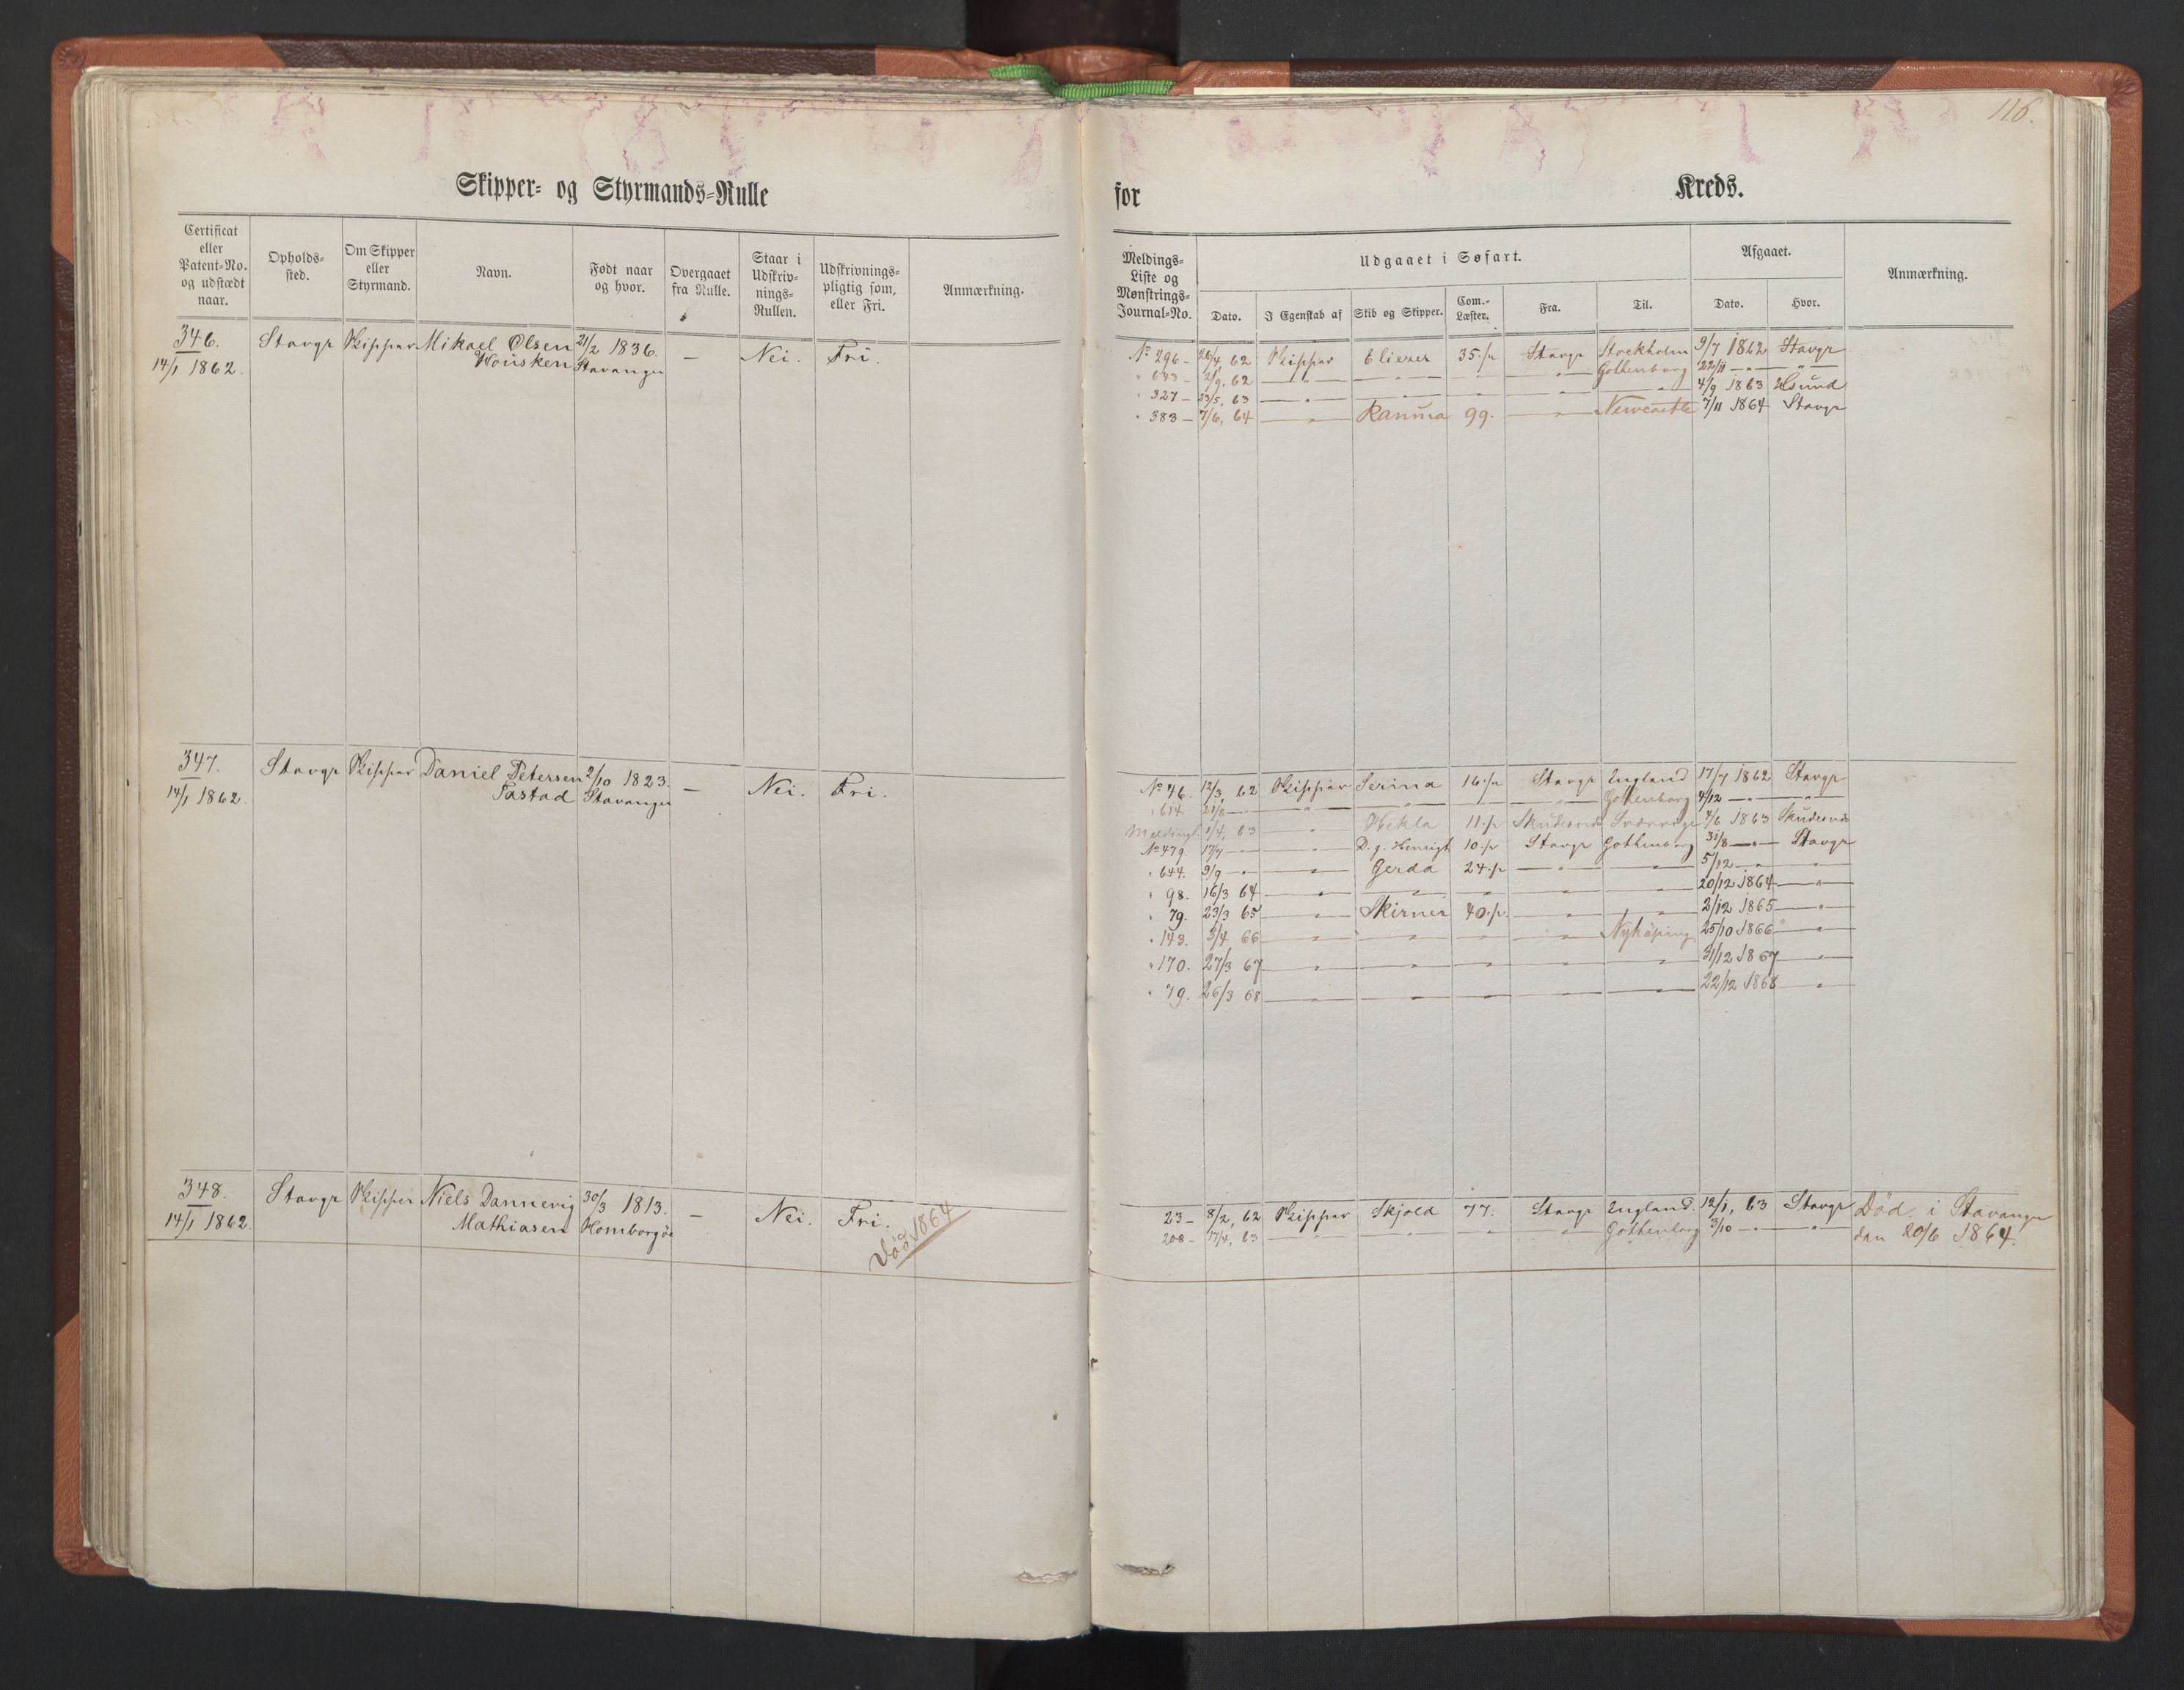 116.
Skipper- og Styrmands-Rulle
for Kreds.
Certificat eller Patent-No. og udstædt naar.
Opholds-sted.
Om Skipper eller Styrmand.
Navn.
Født naar og hvor.
Overgaaet fra Rulle.
Staar i Udskriv-nings-Rullen.
Udskrivnings-pligtig som, eller Fri.
Anmærkning.
Meldings-Liste og Mønstrings-Journal-No.
Udgaaet i Søfart.
Dato.
I Egenskab af
Skib og Skipper.
Com.-Læster.
Fra.
Til.
Afgaaet.
Dato.
Hvor.
Anmærkning.
346. Stavgr Skipper Mikael Olsen 21/2 1836. — Nei. Fri.
14/1 1862. Housken Stavanger
No 296 - 26/4 62 Skipper Eliezer 35 Stavgr Stockholm 9/7 1862 Stavgr
" 643 - 2/9, 62 — " — — " — Gothenborg 22/11 — " — "
" 327 - 23/5, 63 — " — — " — " 4/9 1863 Esund
" 383 - 7/6, 64 — " — Ranma 99. — " — Newcastle 7/11 1864 Stavgr
347. Stavgr Skipper Daniel Petersen 2/10 1823. — Nei. Fri.
14/1 1862 Tastad Stavanger
No 46. 12/3 62 Skipper Serina 16 Stavgr England 17/7 1862 Stavgr
" 614 21/8 — " — " — " — " — Gothenborg 4/12 — " — "
Meldingl. 1/4, 63 " Hekla 11 Skudesnes 4/6 1863 Skudesnes
No 479. 17/7 — " — D. g. Hensigt 10 Stavgr Gothenborg 31/8 — " — Stavgr
" 644. 3/9 — " — " — Gerda 24 — " — " — 5/12 — " — "
" 98. 16/3 64 — " — " — " — " — " — 20/12 1864 — " —
" 79. 23/3 65 — " — Skirner 40 — " — " — 2/12 1865 — " —
" 143. 3/4 66 — " — " — " — " — Nykøping 25/10 1866 — " —
" 170. 27/3 67 — " — " — " — " — " — 31/12 1867 — " —
" 79. 26/3 68 — " — " — " — " — " — 22/12 1868 — " —
348. Stavgr Skipper Niels Dannevig 30/3 1813. — Nei. Fri.
14/1 1862. Mathiasen Homborgø
Død 1864
23 - 8/2, 62 Skipper Skjold 77. Stavgr England. 12/1, 63 Stavgr Død i Stavanger
208 - 17/4, 63 — " — " — " — " — Gothenborg 3/10 — " — " — den 20/6 1864.